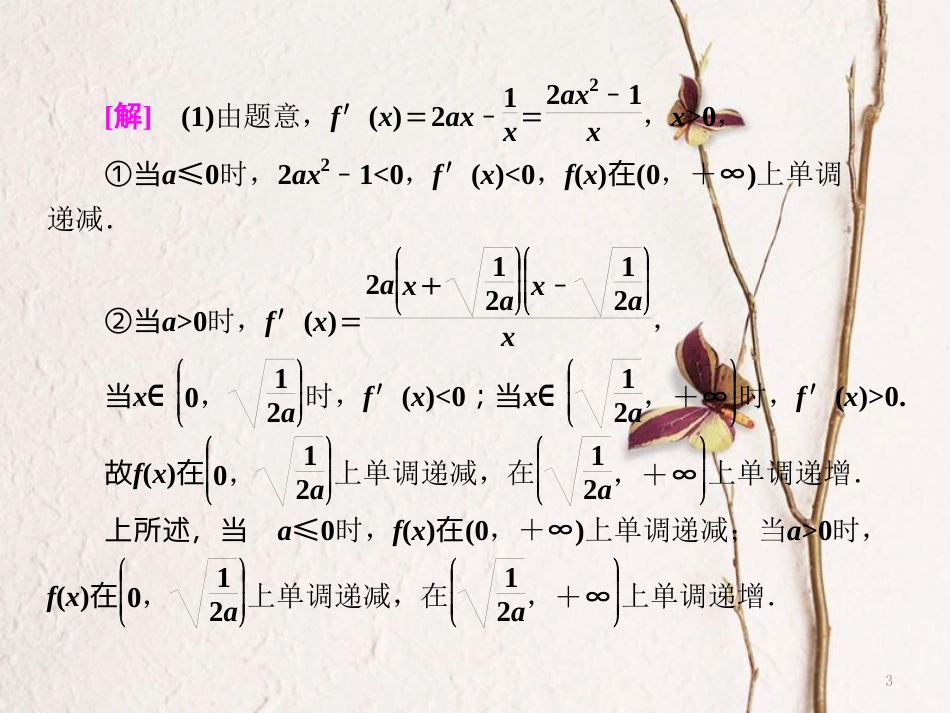 [解] (1)由题意，f′(x)＝2ax－1/x＝(2ax²－1)/x，x>0，
①当a≤0时，2ax²－1<0，f′(x)<0，f(x)在(0，＋∞)上单调
递减．
②当a>0时，f′(x)＝2a(x＋√(1/2a))(x－√(1/2a))/x，
当x∈(0，√(1/2a))时，f′(x)<0；当x∈(√(1/2a)，＋∞)时，f′(x)>0.
故f(x)在(0，√(1/2a))上单调递减，在(√(1/2a)，＋∞)上单调递增．
上所述，当 a≤0时，f(x)在(0，＋∞)上单调递减；当a>0时，
f(x)在(0，√(1/2a))上单调递减，在(√(1/2a)，＋∞)上单调递增．
3